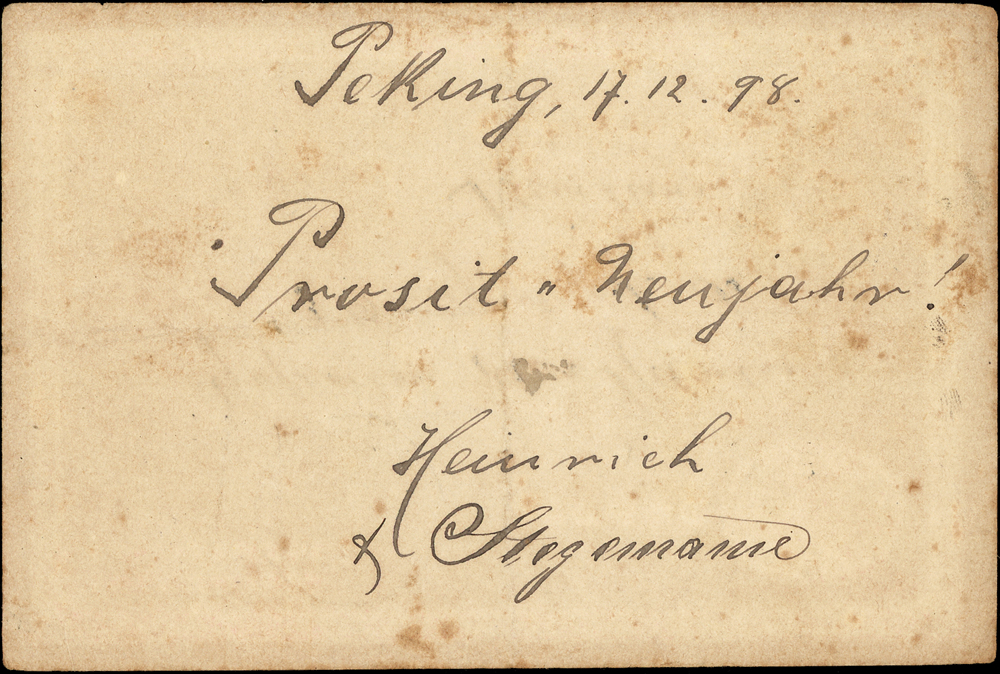 Peking, 17. 12. 98.
Prosit " Neujahr!
Heinrich
Stegemann